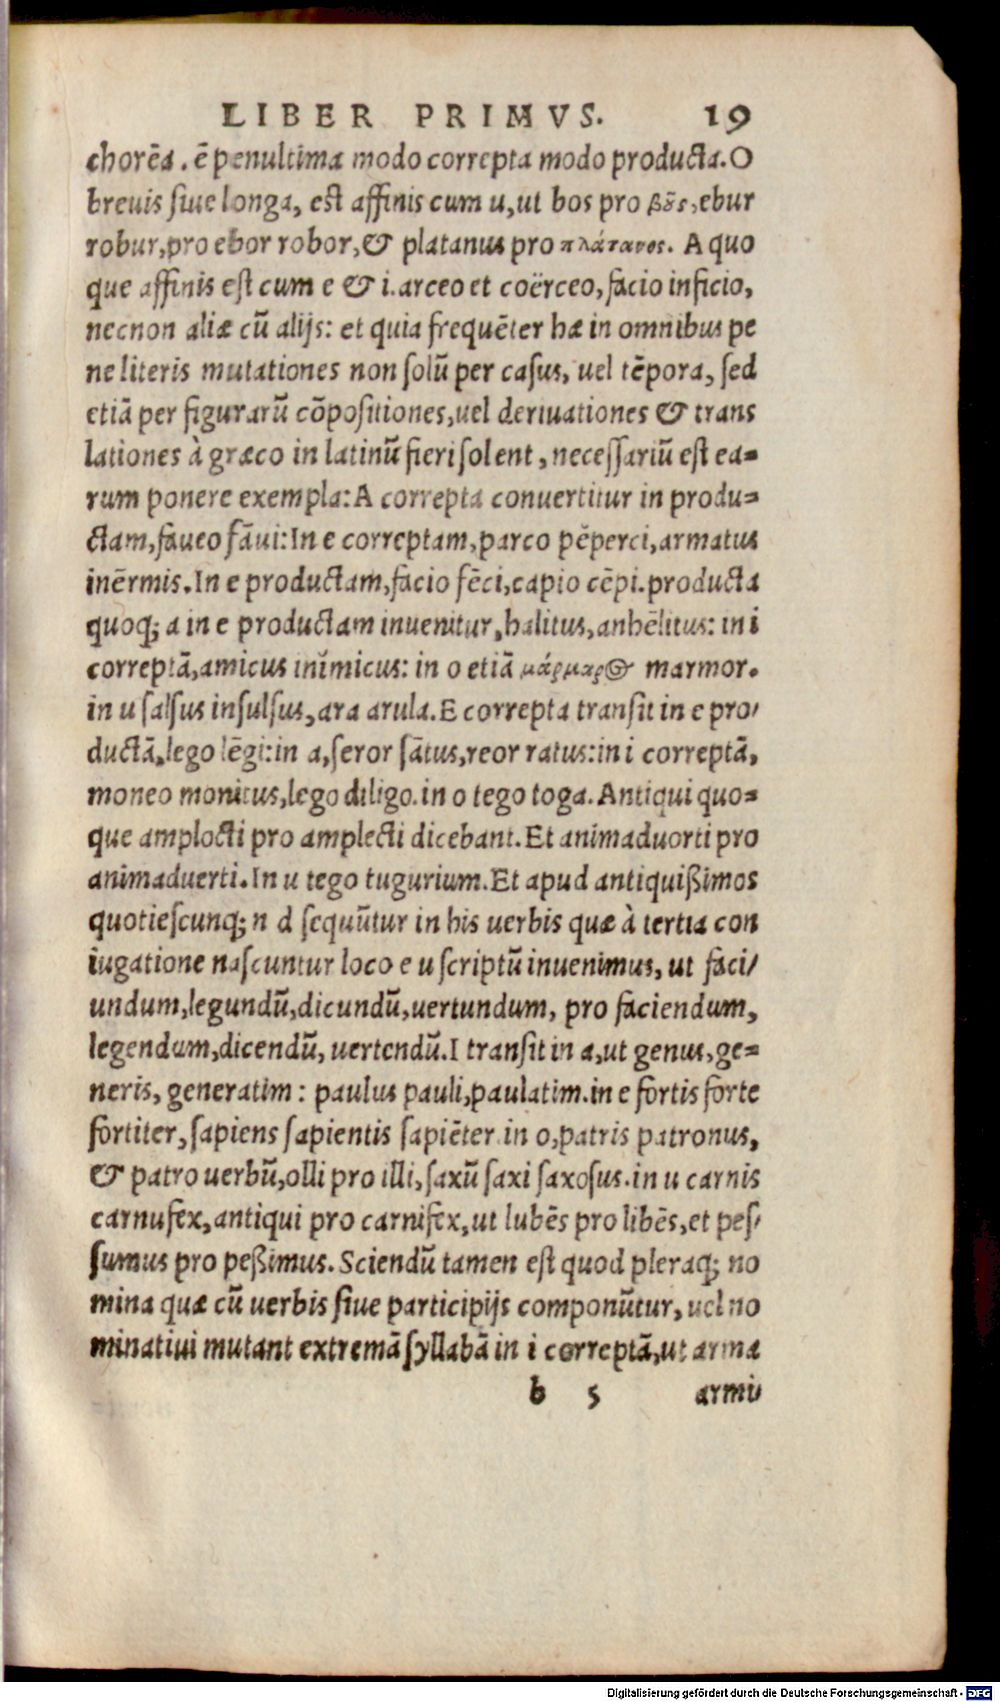 LIBER PRIMVS. 19
chorēa. ē penultima modo correpta modo producta. O
breuis ſiue longa, eſt affinis cum u, ut bos pro βȣ̃ς, ebur
robur, pro ebor robor, & platanus pro πλάτανος. A quo
que affinis eſt cum e & i. arceo et coërceo, facio inficio,
necnon aliæ cū alijs: et quia frequēter hæ in omnibus pe
ne literis mutationes non ſolū per caſus, uel tēpora, ſed
etiā per figurarū cōpoſitiones, uel deriuationes & trans
lationes à græco in latinū fieri ſolent, neceſſariū eſt ea=
rum ponere exempla: A correpta conuertitur in produ=
ctam, faueo fāui: In e correptam, parco pēperci, armatus
inērmis. In e productam, facio fēci, capio cēpi. producta
quoq; a in e productam inuenitur, halitus, anhēlitus: in i
correptā, amicus inĩmicus: in o etiā μάρμαρ⊙ marmor.
in u ſalſus inſulſus, ara arula. E correpta tranſit in e pro/
ductā, lego lēgi: in a, ſeror ſātus, reor ratus: in i correptā,
moneo monitus, lego diligo. in o tego toga. Antiqui quo=
que amplocti pro amplecti dicebant. Et animaduorti pro
animaduerti. In u tego tugurium. Et apud antiquißimos
quotieſcunq; n d ſequūtur in his uerbis quæ à tertia con
iugatione naſcuntur loco e u ſcriptū inuenimus, ut faci/
undum, legundū, dicundū, uertundum, pro faciendum,
legendum, dicendū, uertendū. I tranſit in a, ut genus, ge=
neris, generatim: paulus pauli, paulatim. in e fortis forte
fortiter, ſapiens ſapientis ſapiēter. in o, patris patronus,
& patro uerbū, olli pro illi, ſaxū ſaxi ſaxoſus. in u carnis
carnufex, antiqui pro carnifex, ut lubēs pro libēs, et peſ/
ſumus pro peßimus. Sciendū tamen eſt quod pleraq; no
mina quæ cū uerbis ſiue participijs componūtur, uel no
minatiui mutant extremā ſyllabā in i correptā, ut arma
b 5 armi/
Digitalisierung gefördert durch die Deutsche Forschungsgemeinschaft - DFG